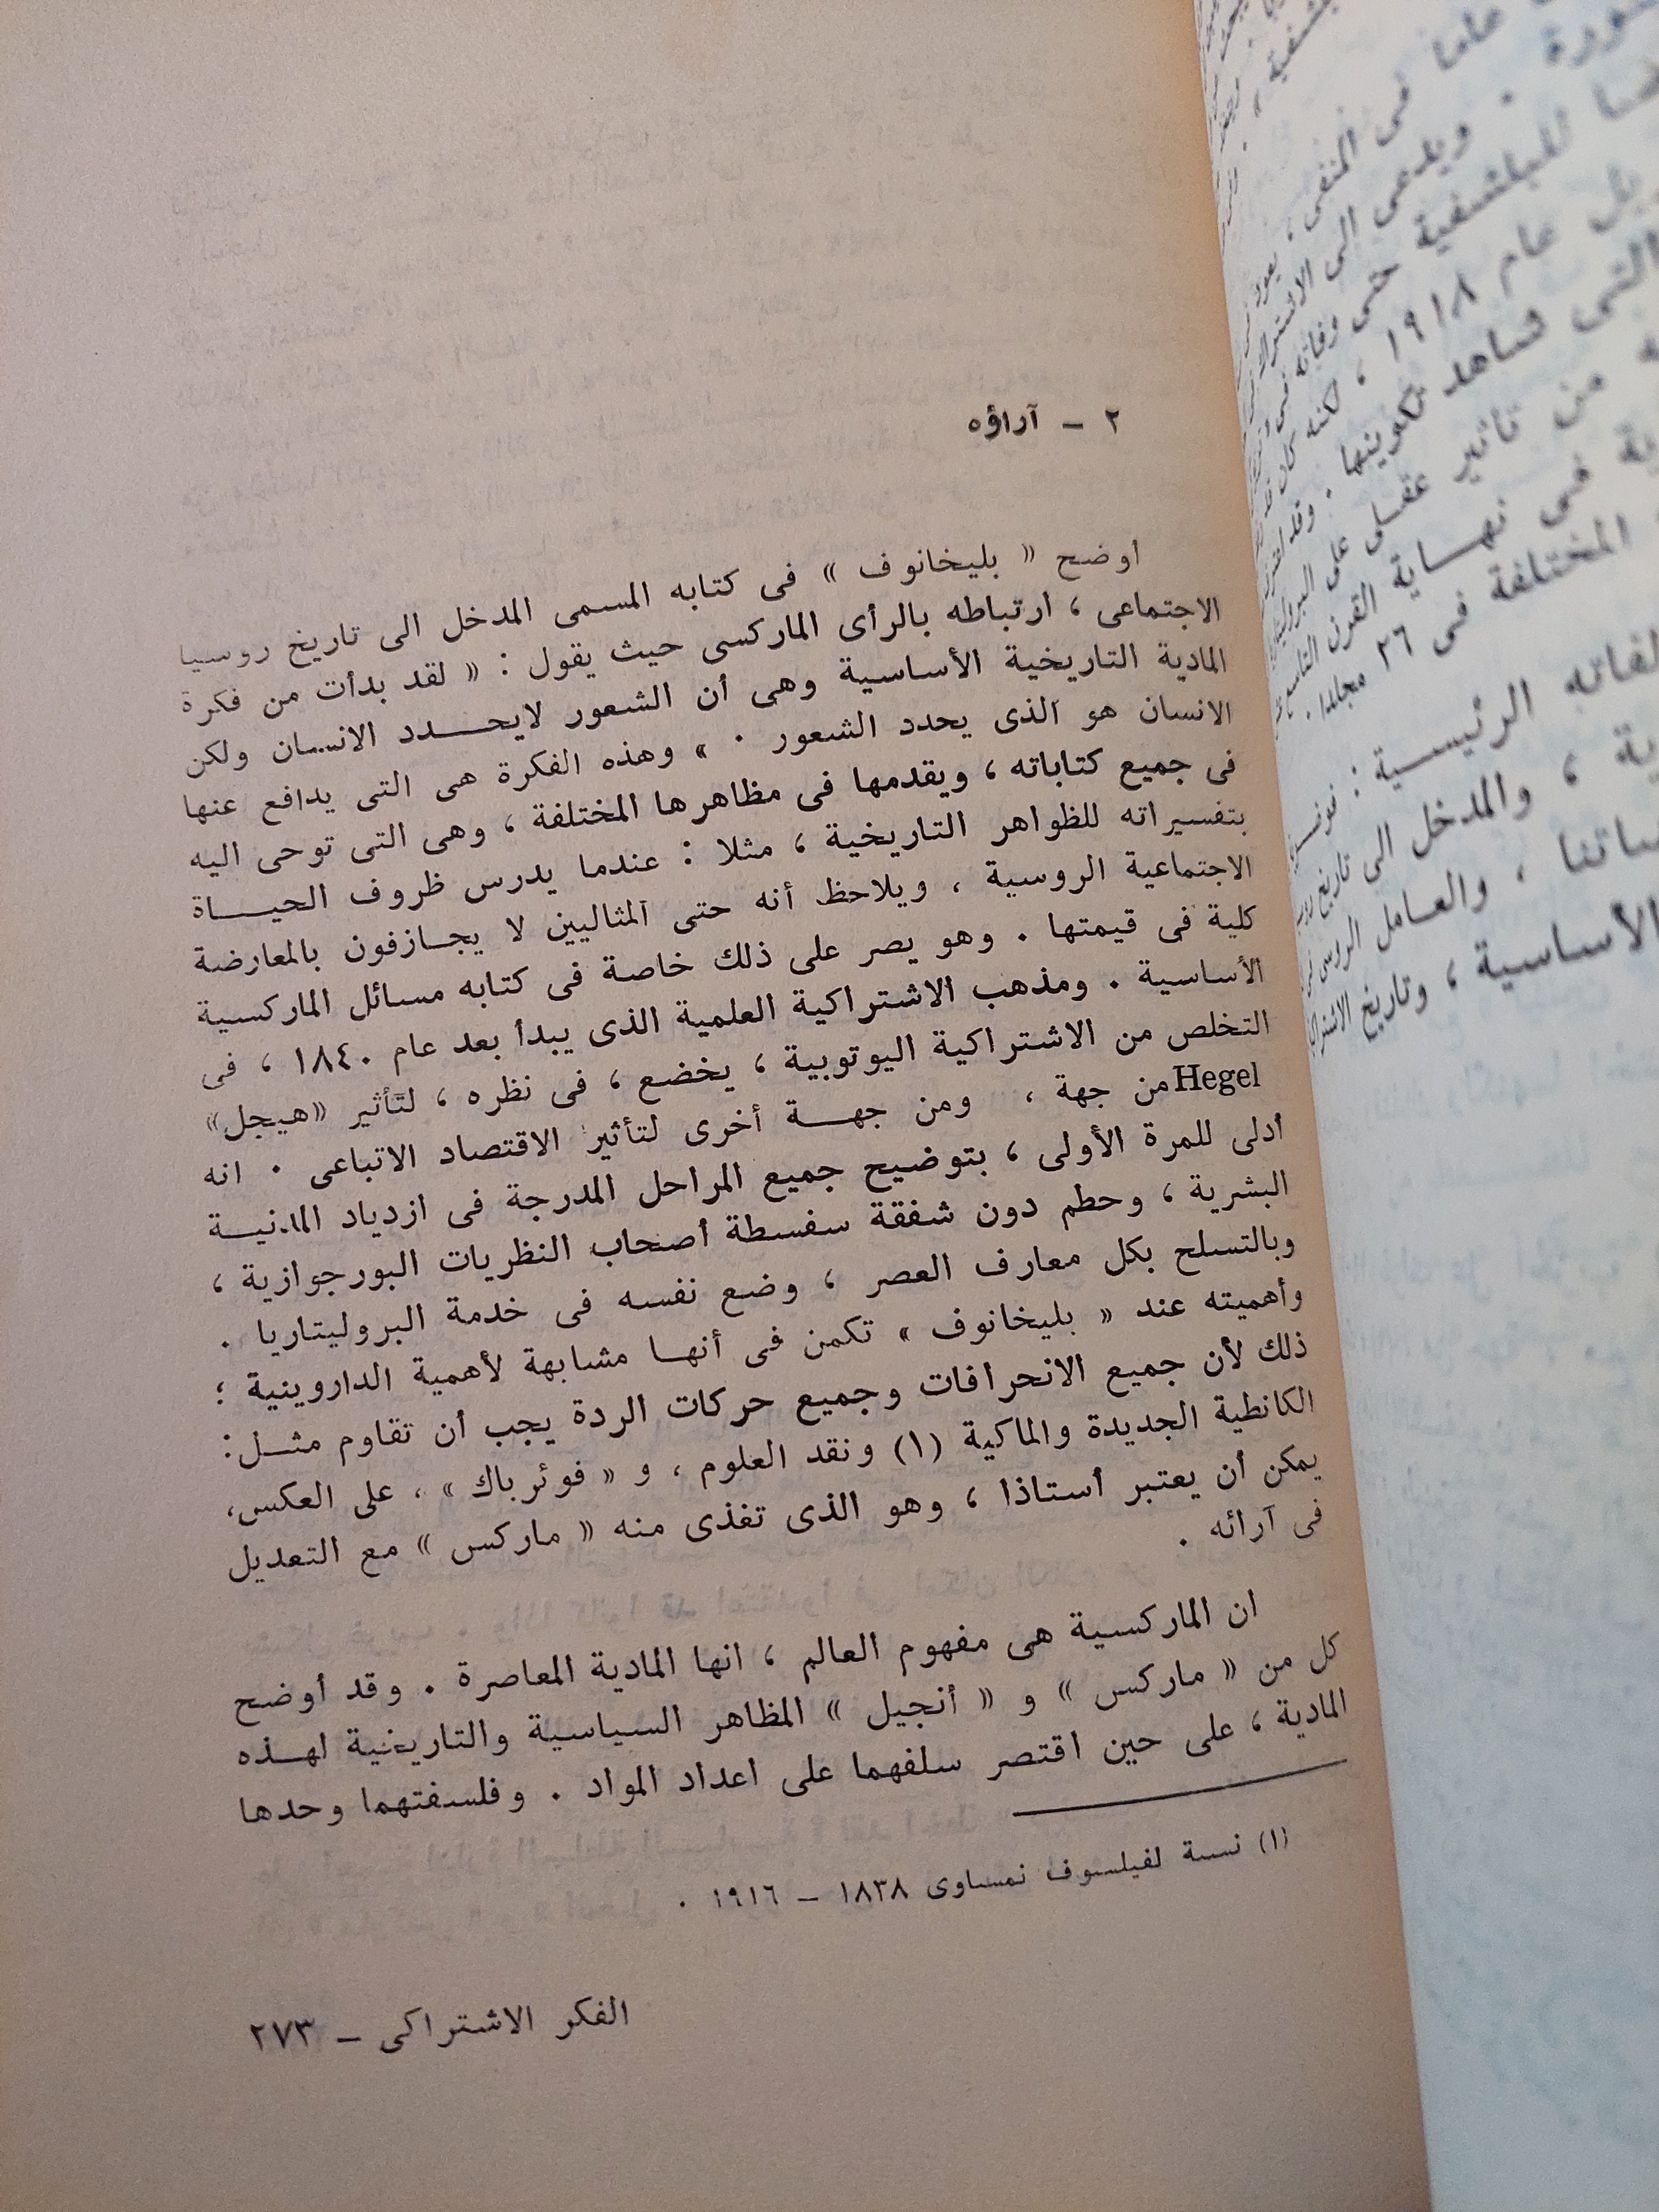 ٢ ــ آراؤه
أوضح « بليخانوف » فى كتابه المسمى المدخل الى تاريخ روسيا
الاجتماعى ، ارتباطه بالرأى الماركسى حيث يقول : « لقد بدأت من فكرة
المادية التاريخية الأساسية وهى أن الشعور لايحـــدد الانسان ولكن
الانسان هو الذى يحدد الشعور . » وهذه الفكرة هى التى يدافع عنها
فى جميع كتاباته ، ويقدمها فى مظاهرها المختلفة ، وهى التى توحى اليه
بتفسيراته للظواهر التاريخية ، مثلا : عندما يدرس ظروف الحيـــاة
الاجتماعية الروسية ، ويلاحظ أنه حتى المثاليين لا يجـازفون بالمعارضة
كلية فى قيمتها . وهو يصر على ذلك خاصة فى كتابه مسائل الماركسية
الأساسية . ومذهب الاشتراكية العلمية الذى يبدأ بعد عام ١٨٤٠ ، فى
التخلص من الاشتراكية اليوتوبية ، يخضع ، فى نظره ، لتأثير «هيجل»
Hegel من جهة ، ومن جهـــة أخرى لتأثير الاقتصاد الاتباعى . انه
أدلى للمرة الأولى ، بتوضيح جميع المراحل المدرجة فى ازدياد المدنيـــة
البشرية ، وحطم دون شفقة سفسطة أصحاب النظريات البورجوازية ،
وبالتسلح بكل معارف العصر ، وضع نفسه فى خدمة البروليتاريا .
وأهميته عند « بليخانوف » تكمن فى أنهـا مشابهة لأهمية الداروينية ؛
ذلك لأن جميع الانحرافات وجميع حركات الردة يجب أن تقاوم مثــل :
الكانطية الجديدة والماكية (١) ونقد العلوم ، و « فوئرباك » ، على العكس،
يمكن أن يعتبر أستاذا ، وهو الذى تغذى منه « ماركس » مع التعديل
فى آرائه .
ان الماركسية هى مفهوم العالم ، انها المادية المعاصرة . وقد أوضح
كل من « ماركس » و « أنجيل » المظاهر السياسية والتاريخية لهـــذه
المادية ، على حين اقتصر سلفهما على اعداد المواد . وفلسفتهما وحدها
(١) نسبة لفيلسوف نمساوى ١٨٣٨ ــ ١٩١٦ .
الفكر الاشتراكى ــ ٢٧٣
عاما فى المنفى ، يعود
ويدعى الى
للبلشفية حتى وفاته فى
عام ١٩١٨ ، لكنه كان قد
التى شاهد تكوينها . وقد
من تأثير عقلى على
فى نهـــاية القرن التاسع
المختلفة فى ٢٦ مجلدا .
الرئيسـية :
والمدخل الى تاريخ
والعـامل الروسى
الأساسية ، وتاريخ